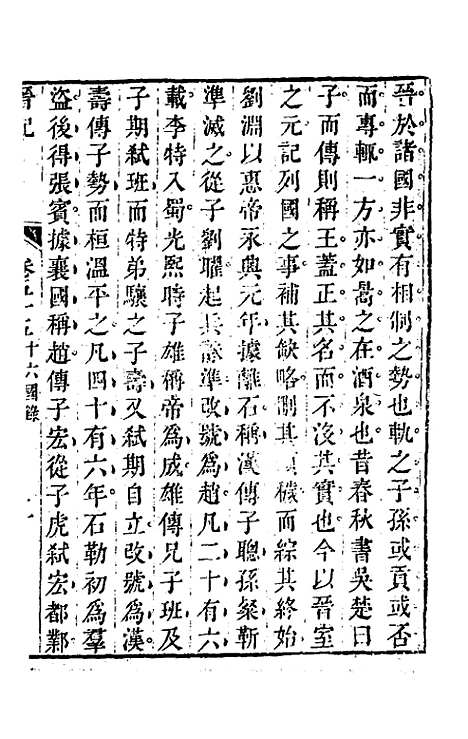 晉於諸國非實有相侗之勢也軌之子孫或貢或否
而專輒一方亦如曷之在酒泉也昔春秋書吳楚曰
子而傳則稱王蓋正其名而不沒其實也今以晉室
之元記列國之事補其缺略刪其穢而綜其終始
劉淵以惠帝永興元年據離石稱漢傳子聰孫粲靳
準滅之從子劉曜起兵訟準改號為趙凡二十有六
載李特入蜀光熙時子雄稱帝為成雄傳兄子班及
子期弒班而特弟驤之子壽又弒期自立改號為漢
壽傳子勢而桓溫平之凡四十有六年石勒初為羣
盜後得張賓據襄國稱趙傳子宏從子虎弒宏都鄴
晉記
卷五十五
十六國錄